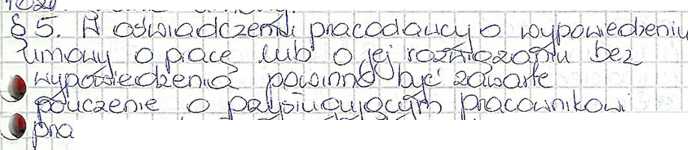 § 5. W oświadczeniu pracodawcy o wypowiedzeniu
umowy o pracę lub o jej rozwiązaniu bez
wypowiedzenia powinno być zawarte
pouczenie o przysługującym pracownikowi
pra